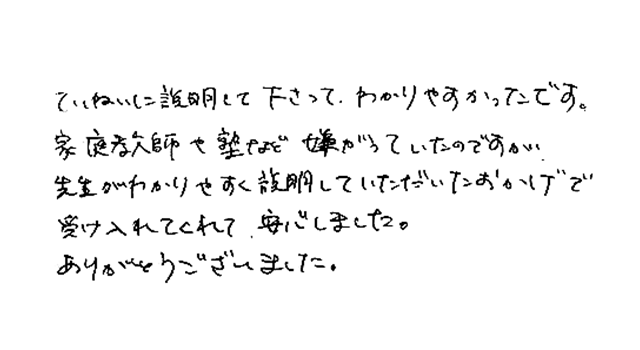 ていねいに説明して下さって、わかりやすかったです。
家庭教師や塾など嫌がっていたのですが、
先生がわかりやすく説明していただいたおかげで
受け入れてくれて、安心しました。
ありがとうございました。